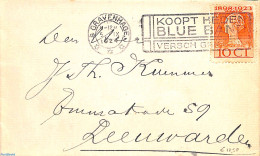 'S GRAVENHAGE
KOOPT HEDEN
BLUE BAND
VERSCH G
1898-1923
10 CT
Den Heer
J. Th. Kremmer
Emmakade 59
Leeuwarden